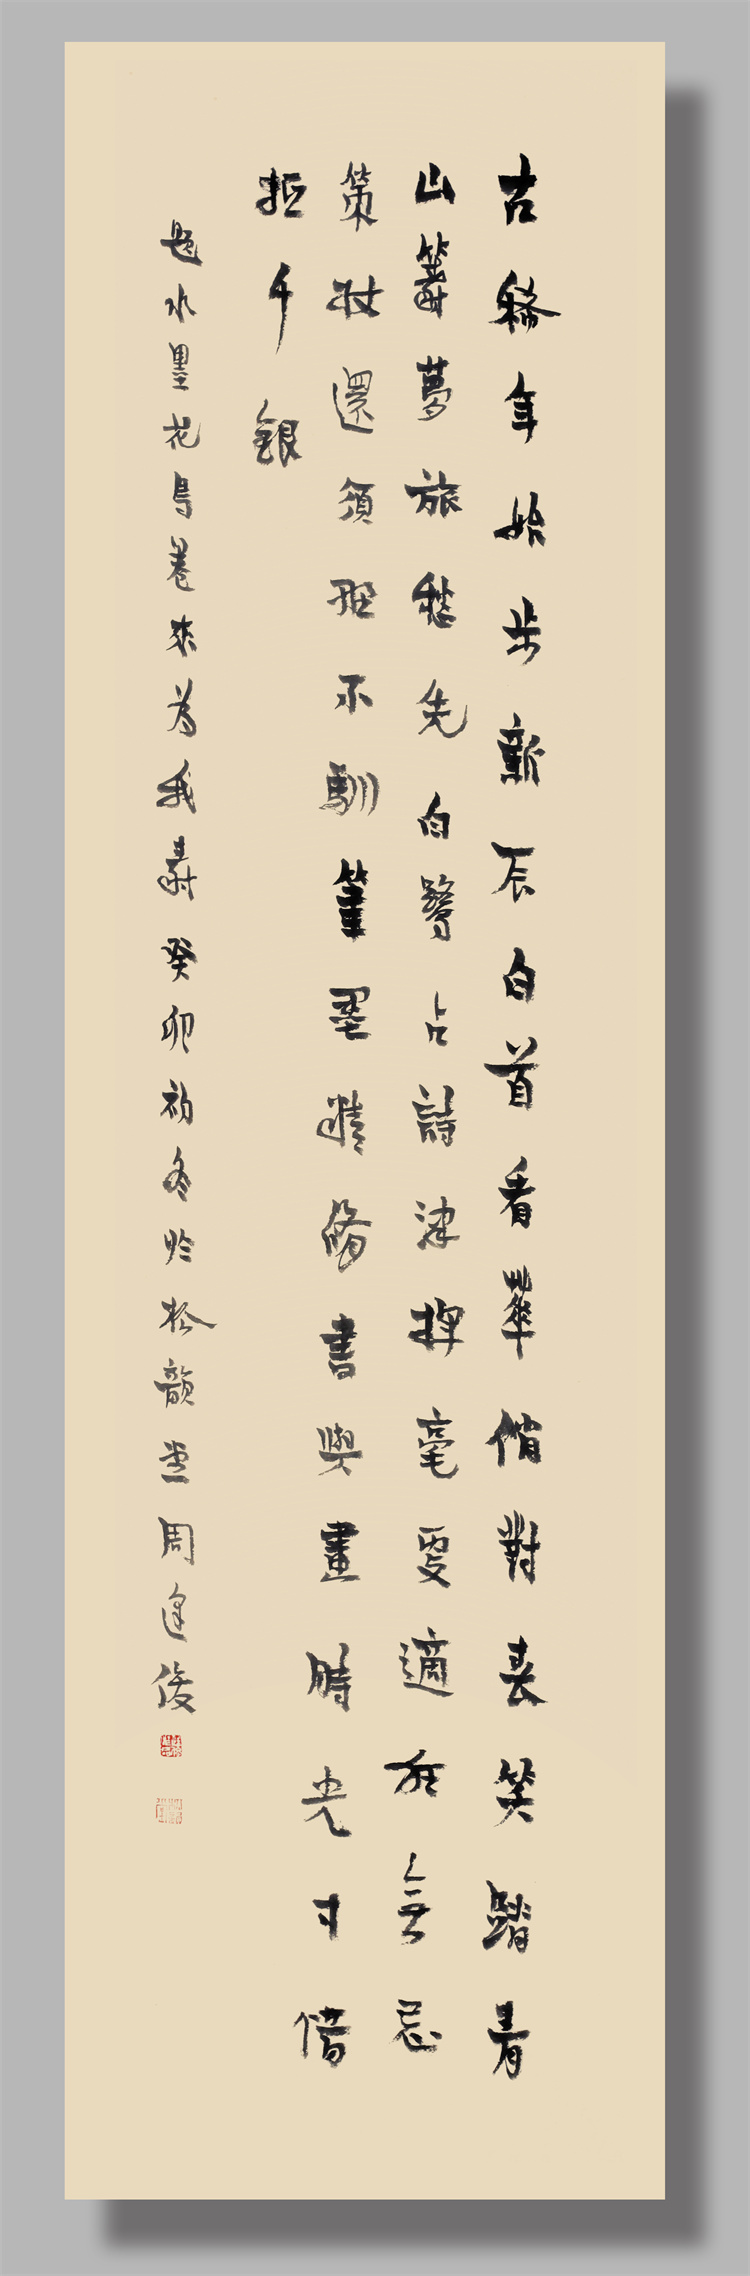 古稀年始步新辰白首看華俏對春笑踏青
山籌夢旅愁先白鷺占詩津揮毫更適而無忌
策杖還須野不馴筆墨精脩書與畫時光寸借
抵千銀
題水墨花鳥卷來為我壽癸卯初冬於松韻堂周逢俊